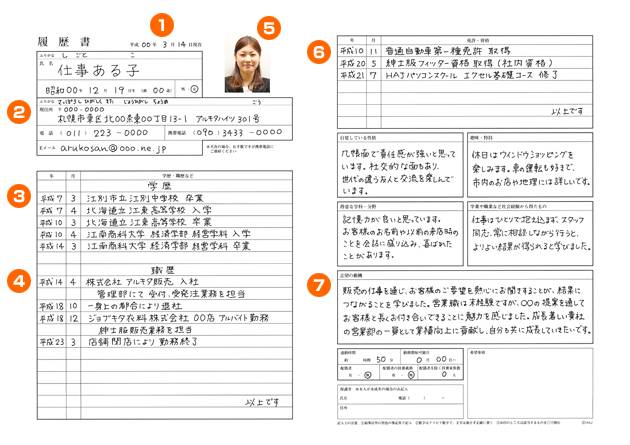 1
履歴書
平成 00年 3月 14日現在
ふりがな しごと こ
氏名 仕事ある子
昭和00年 12月 19日生 (満00歳) 男・女
5
2
ふりがな
現住所 〒000-0000
札幌市東区北00条東00丁目13-1 アルキタハイツ301号
電話 (011) 223-0000 携帯電話 (090) 3433-0000
Eメール arukosan@000.ne.jp
3
年 月 学歴・職歴など
学歴
平成7 3 江別市立江別中学校 卒業
平成7 4 北海道立江東高等学校 入学
平成10 3 北海道立江東高等学校 卒業
平成10 4 江南商科大学 経済学部 経営学科 入学
平成14 3 江南商科大学 経済学部 経営学科 卒業
4
職歴
平成14 4 株式会社 アルキタ販売 入社
管理部にて 受付、受発注業務を担当
平成18 10 一身上の都合により退社
平成18 12 ジョブキタ衣料株式会社 00店 アルバイト勤務
紳士服販売業務を担当
平成23 3 店舗閉店により 勤務終了
以上です
6
年 月 免許・資格
平成10 11 普通自動車第一種免許 取得
平成20 5 紳士服フィッター資格 取得(社内資格)
平成21 7 HAJパソコンスクール エクセル基礎コース 修了
以上です
自覚している性格
几帳面で責任感が強いと思っています。社交的な面もあり、
世代の違う人とも交流を楽しんでいます。
趣味・特技
休日はウインドウショッピングを
楽しみます。車の運転も好きで、
市内のお店や地理には詳しいです。
得意な学科・分野
記憶力が良いと思っています。
お客様のお名前や以前の来店時の
ことを会話に盛り込み、喜ばれた
ことがあります。
仕事はひとりで抱え込まず、スタッフ
同志、常に相談しながら行うと、
よりよい結果が得られると学びました。
7
志望の動機
販売の仕事を通じ、お客様のご要望を熱心にお聞きすることが、結果に
つながることを学びました。営業職は未経験ですが、00の提案を通して
お客様と長くお付き合いできることに魅力を感じました。成長著しい貴社
の営業部の一員として業績向上に貢献し、自分も共に成長していきたいです。
通勤時間
約 時間 50分
0月 00日
配偶者
有・無
0人
氏名
電話 ( )
住所